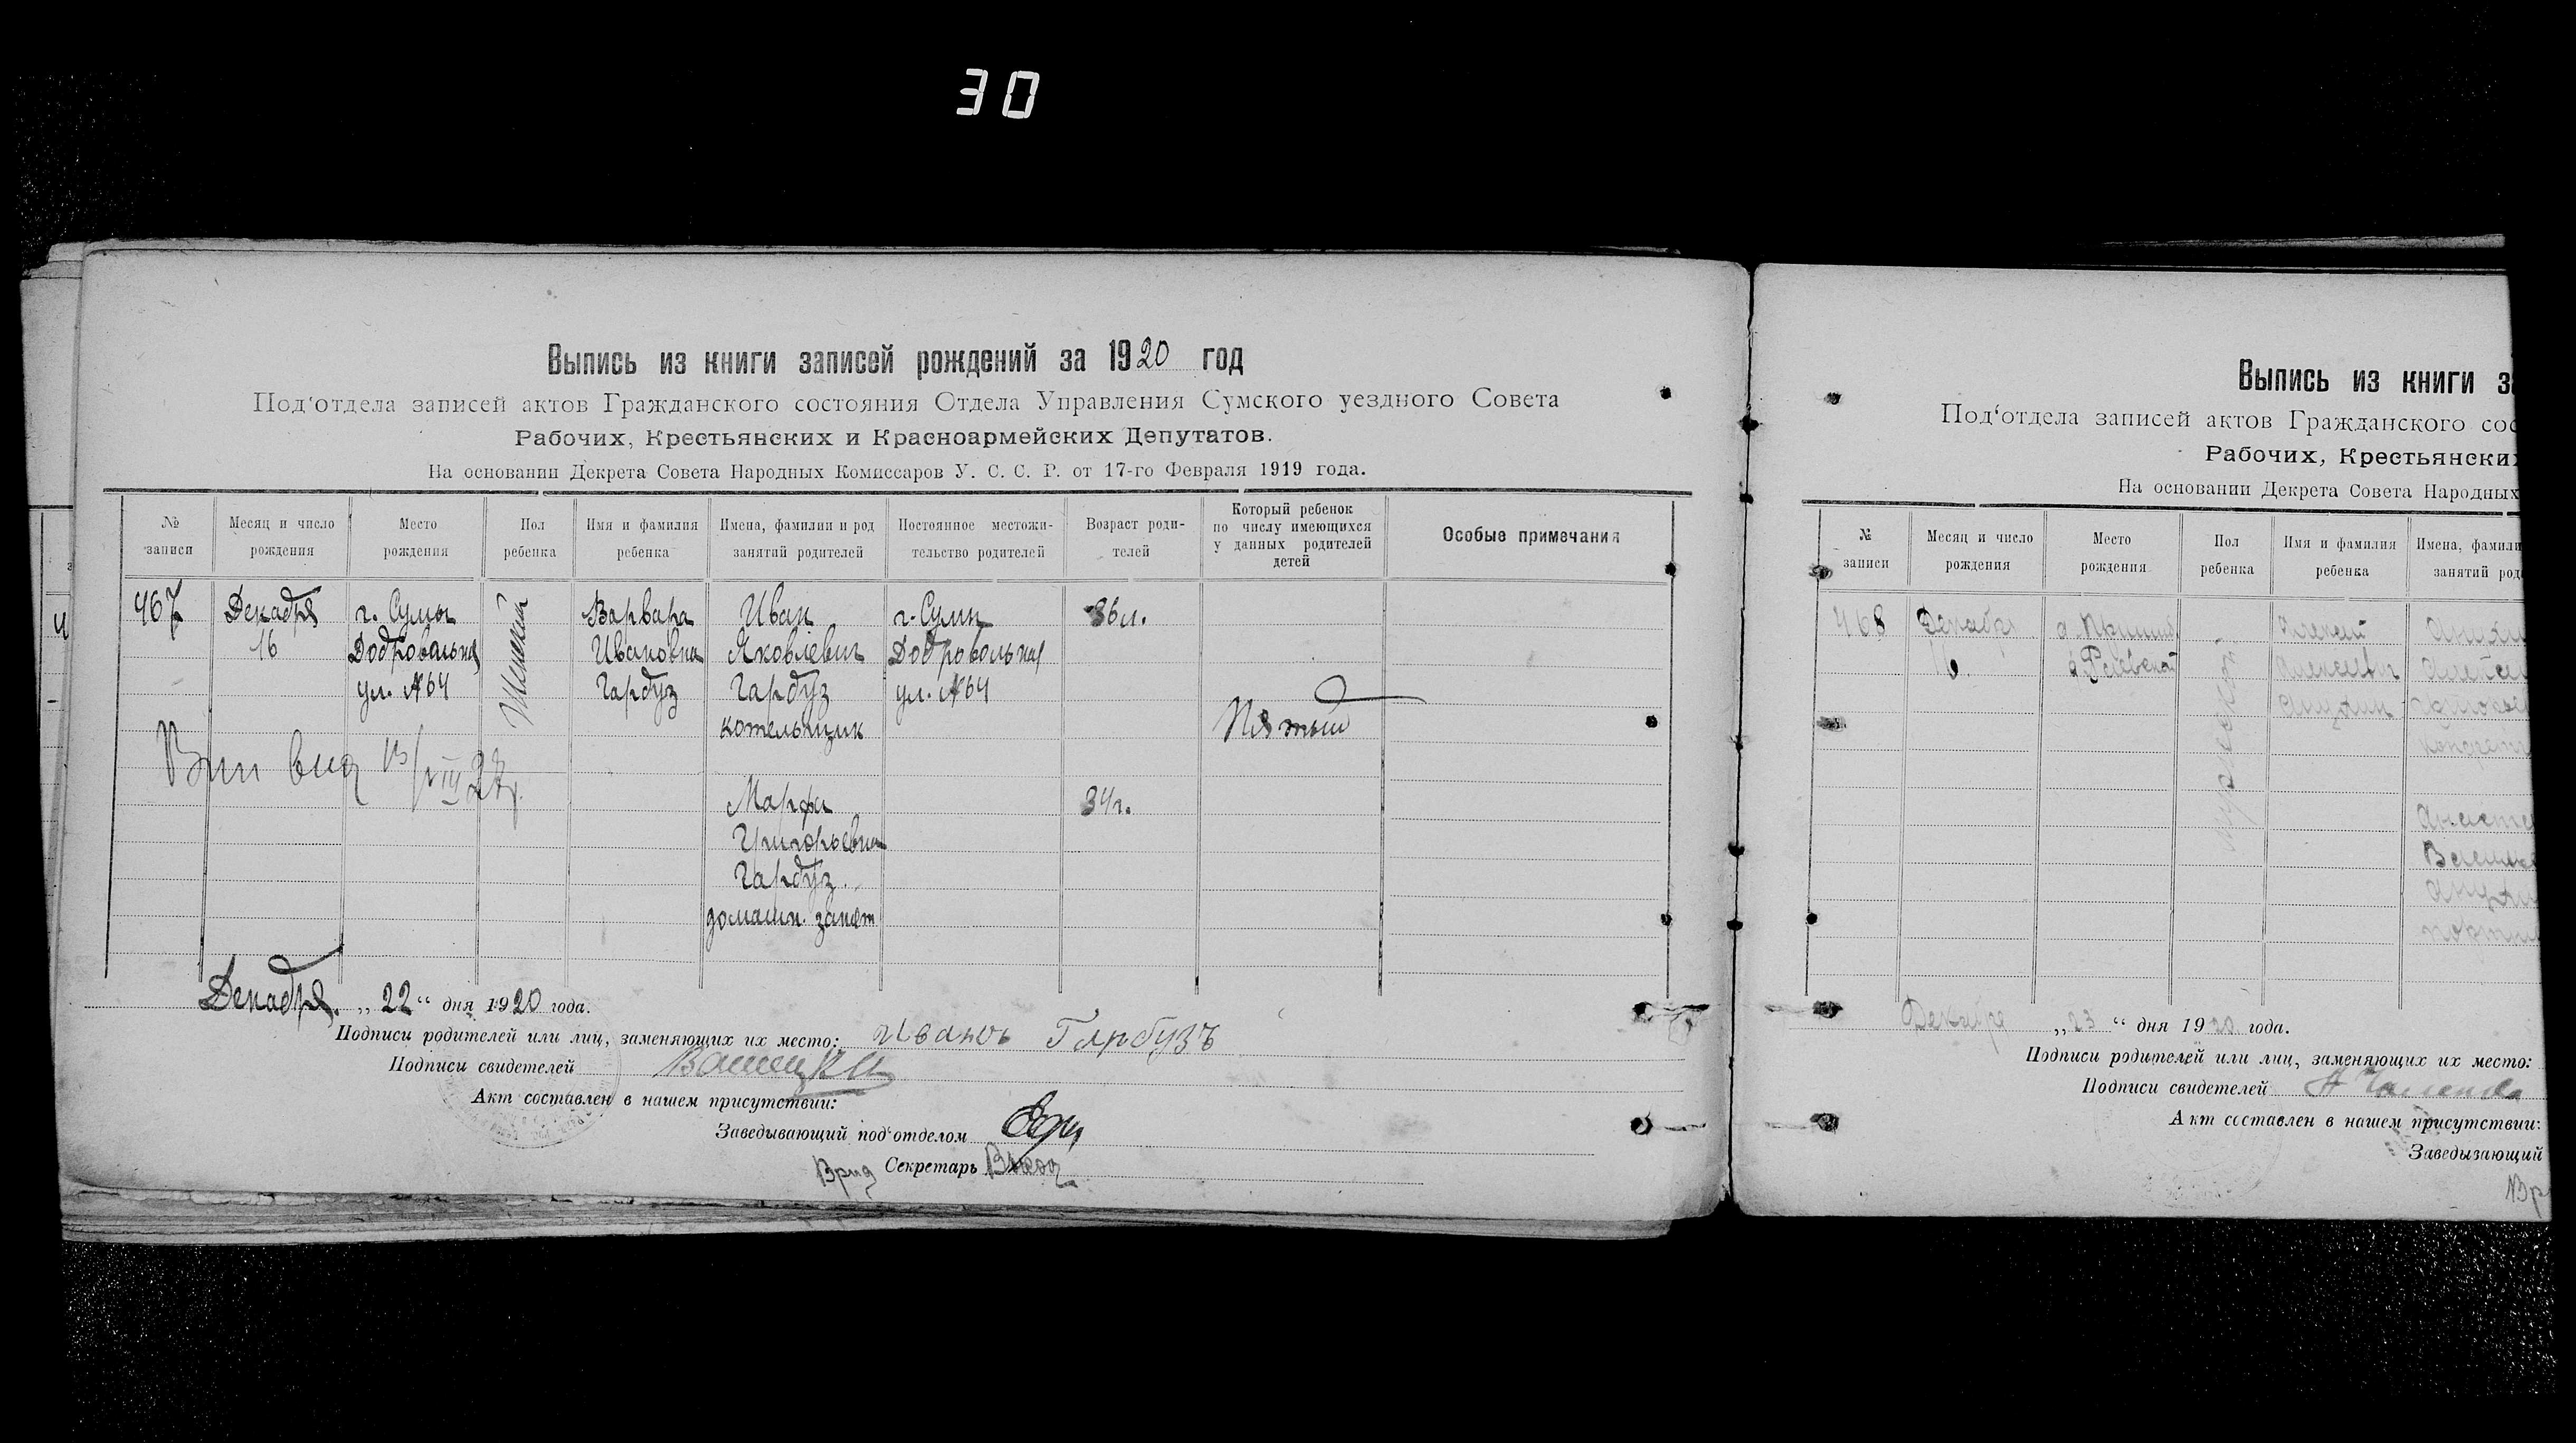 30
Выпись из книги записей рождений за 1920 год
Под‘отдела записей актов Гражданского состояния Отдела Управления Сумского уездного Совета
Рабочих, Крестьянских и Красноармейских Депутатов.
На основании Декрета Совета Народных Комиссаров У. С. С. Р. от 17-го Февраля 1919 года.
№ записи
Месяц и число рождения
Место рождения
Пол ребенка
Имя и фамилия ребенка
Имена, фамилии и род занятий родителей
Постоянное местожительство родителей
Возраст родителей
Который ребенок по числу имеющихся у данных родителей детей
Особые примечания
467
Декабря
16
г. Сумы
Добровольная
ул. №64
Женский
Варвара
Ивановна
Гарбуз
Иван
Яковлевич
Гарбуз
котельщик
Марфа
Григорьевна
Гарбуз.
домашн. занят
г. Сумы
Добровольная
ул. №64
36 л.
34 г.
Пятый
Декабря „22“ дня 1920 года.
Подписи родителей или лиц, заменяющих их место: Иванъ Гарбузъ
Подписи свидетелей
Акт составлен в нашем присутствии:
Заведывающий под‘отделом
Врид Секретарь
Выпись из книги
Под‘отдела записей актов Гражданского
Рабочих,
На основании Декрета Совета Народных
№ записи
Месяц и число рождения
Место рождения
Пол ребенка
Имя и фамилия ребенка
Имена,
468
Декабр
Алексей
Декабря „23“ дня 1920 года.
Подписи родителей или лиц, заменяющих их место:
Подписи свидетелей
Акт составлен в нашем присутствии:
Заведывающий